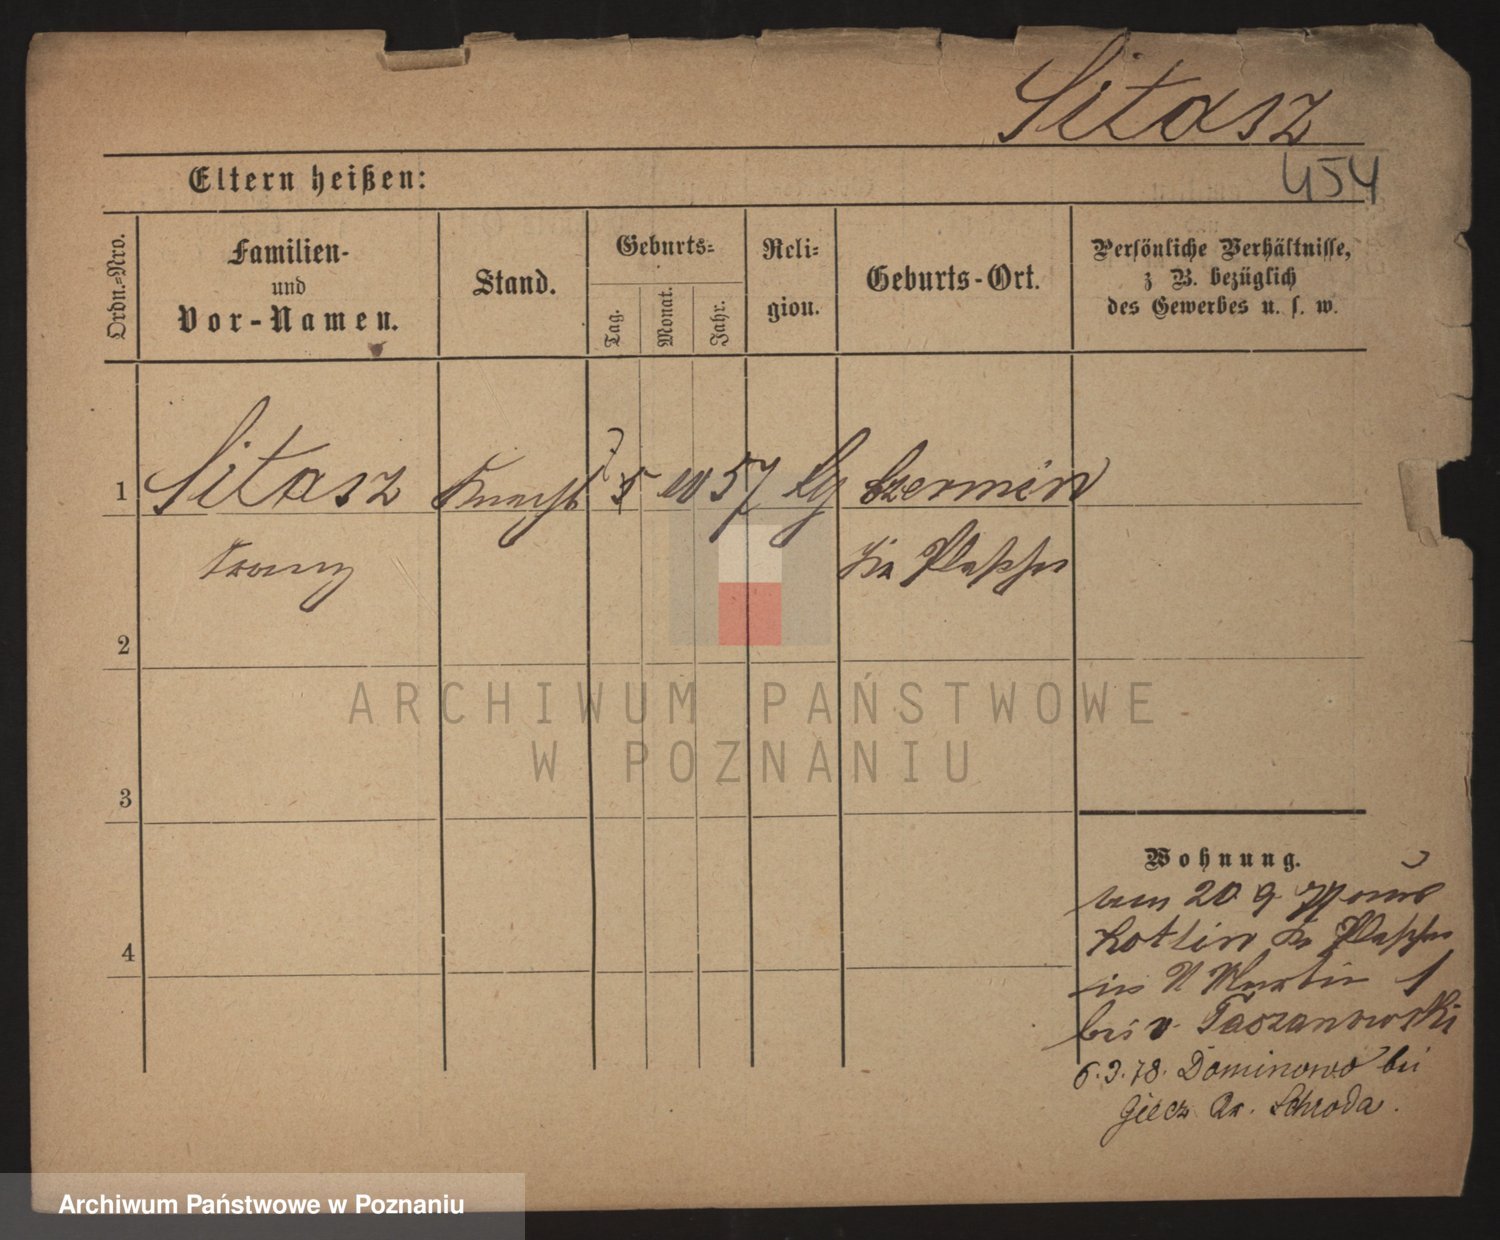 Sitasz
454
Eltern heißen:
Ordn.-Nro.
Familien-
und
Vor-Namen.
Stand.
Geburts-
Tag.
Monat.
Jahr.
Reli-
gion.
Geburts-Ort.
Persönliche Verhältnisse,
z B. bezüglich
des Gewerbes u. s. w.
1 Sitasz Knecht 5 10 57 Czermin
Franz Kr Pleschen
2
3
4
Wohnung.
20 9 77
Kotlin Kr Pleschen
in Martin 1
bei v Taszanowski
6.3.78. Dominowo bei
Giecz Kr. Schroda.
ARCHIWUM PAŃSTWOWE
W POZNANIU
Archiwum Państwowe w Poznaniu